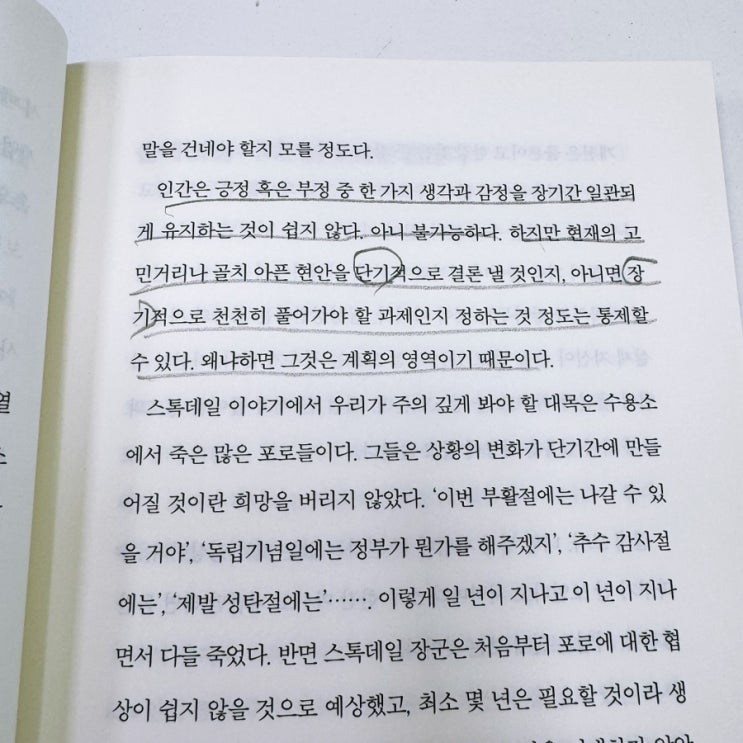 말을 건네야 할지 모를 정도다.
인간은 긍정 혹은 부정 중 한 가지 생각과 감정을 장기간 일관되
게 유지하는 것이 쉽지 않다. 아니 불가능하다. 하지만 현재의 고
민거리나 골치 아픈 현안을 단기적으로 결론 낼 것인지, 아니면 장
기적으로 천천히 풀어가야 할 과제인지 정하는 것 정도는 통제할
수 있다. 왜냐하면 그것은 계획의 영역이기 때문이다.
스톡데일 이야기에서 우리가 주의 깊게 봐야 할 대목은 수용소
에서 죽은 많은 포로들이다. 그들은 상황의 변화가 단기간에 만들
어질 것이란 희망을 버리지 않았다. ‘이번 부활절에는 나갈 수 있
을 거야’, ‘독립기념일에는 정부가 뭔가를 해주겠지’, ‘추수 감사절
에는’, ‘제발 성탄절에는’……. 이렇게 일 년이 지나고 이 년이 지나
면서 다들 죽었다. 반면 스톡데일 장군은 처음부터 포로에 대한 협
상이 쉽지 않을 것으로 예상했고, 최소 몇 년은 필요할 것이라 생